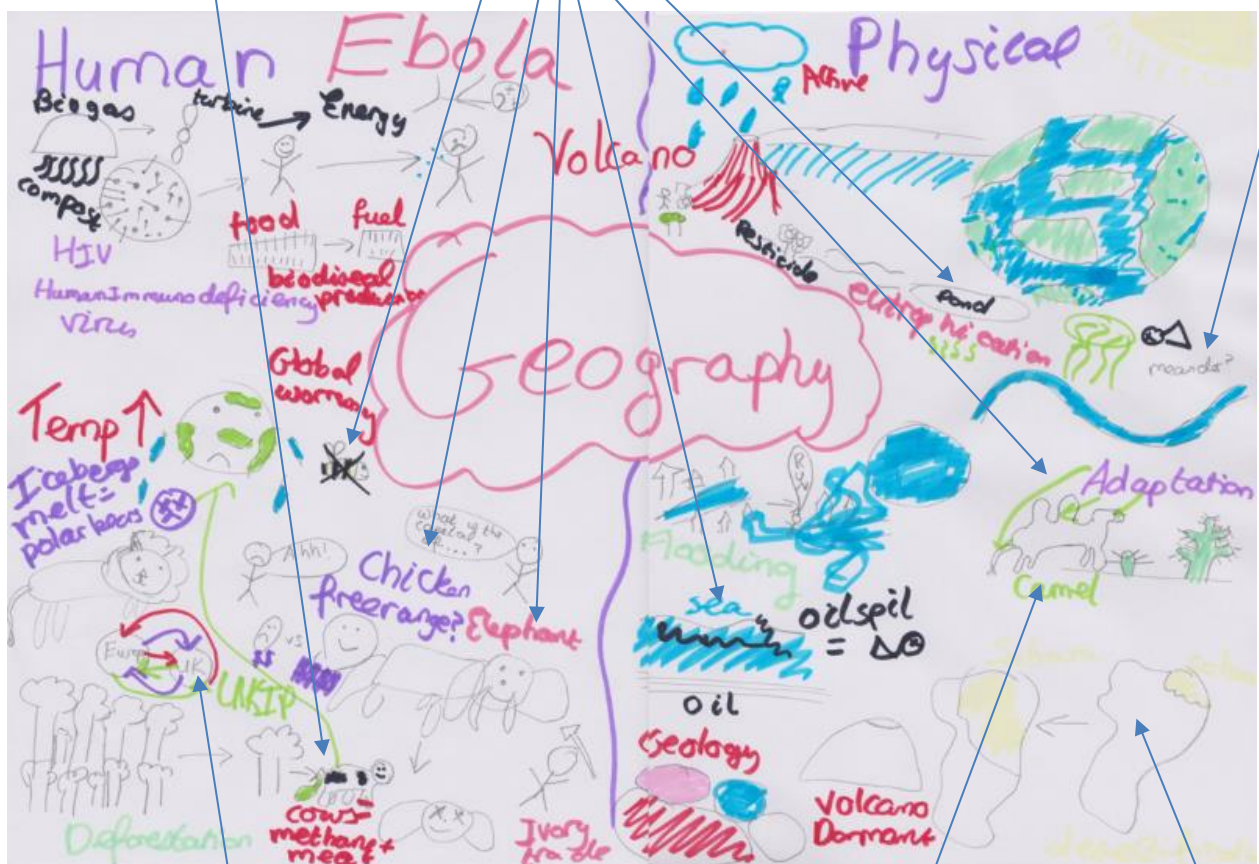 Human
Ebola
Physical
Biogas
turbine
Energy
compost
HIV
Human Immuno deficiency
virus
food
fuel
biodiseal
Volcano
Active
Pesticide
pond
eutrophication
meander?
Geography
Global
Temp
Icebergs
melt=
polar bears
Ahh!
What is the
Chicken
freerange?
Elephant
vs
UK
UNKIP
Deforestation
cows=
methane+
meat
Ivory
trade
Flooding
sea
oilspil
=
oil
Geology
Volcano
Dormant
Adaptation
Camel
Sahara